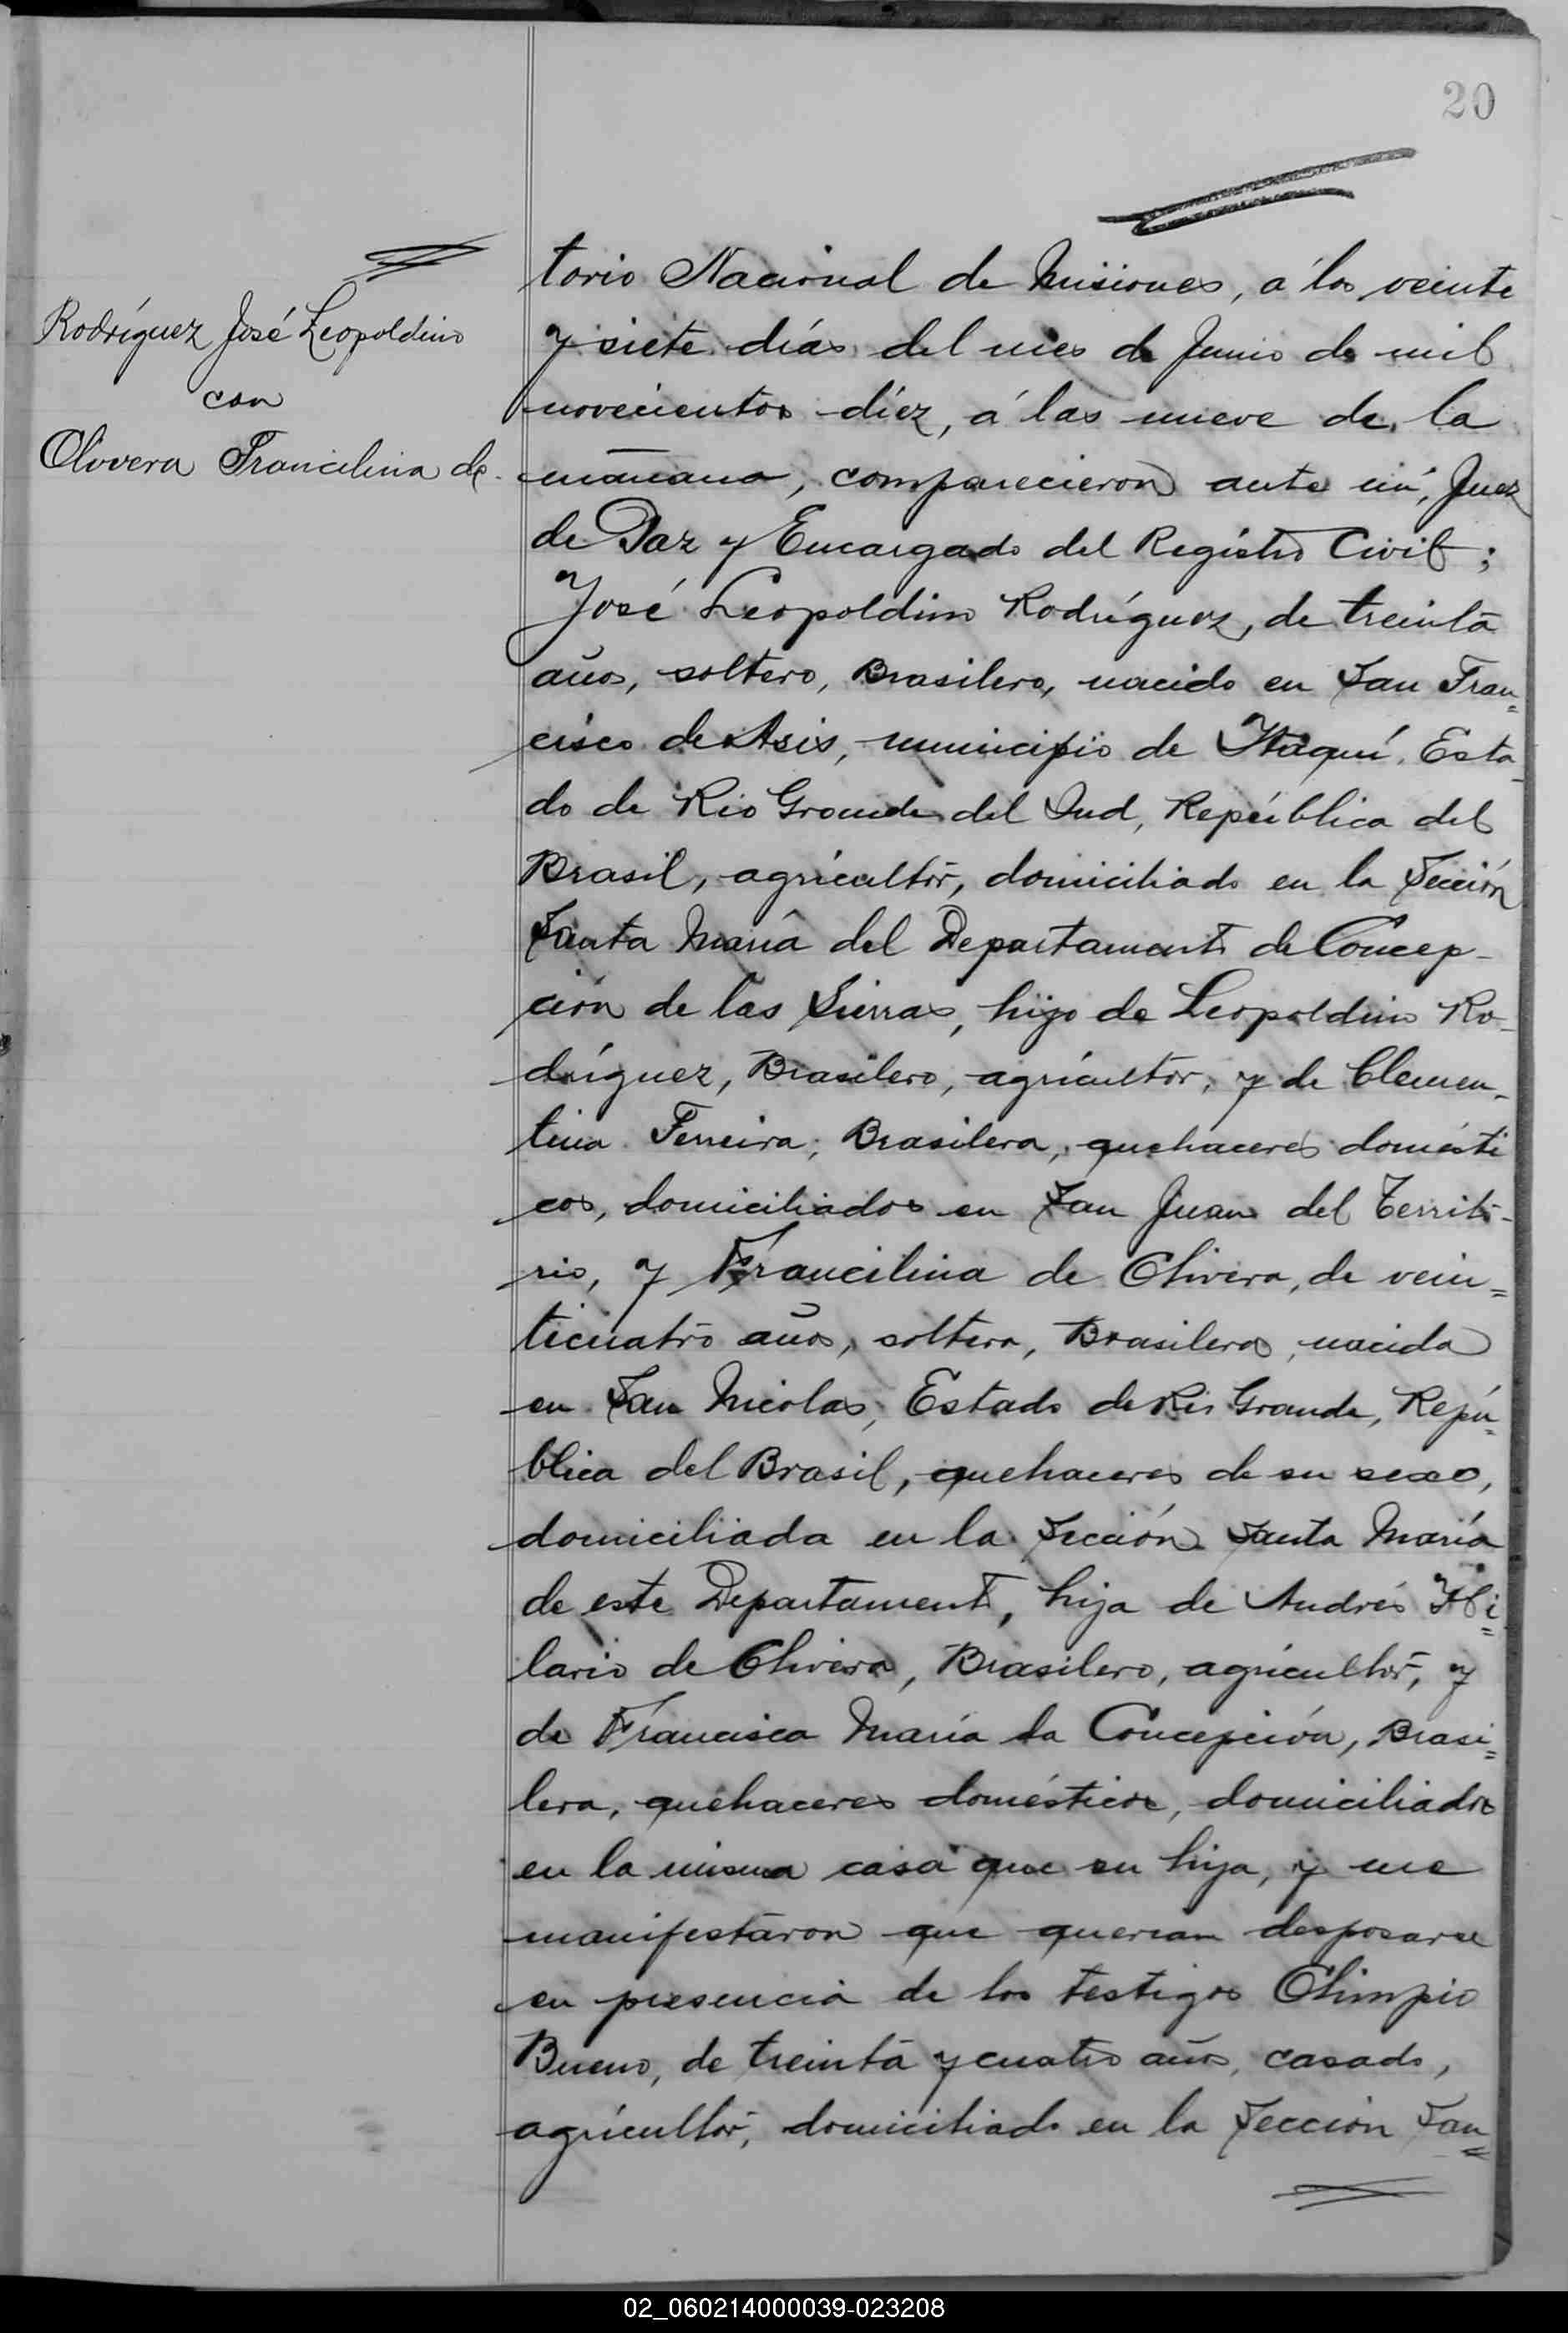 20
Rodríguez José Leopoldino
con
Olivera Francilina de
torio Nacional de Misiones, á los veinte
y siete días del mes de Junio de mil
novecientos diez, á las nueve de la
mañana, comparecieron ante mí, Juez
de Paz y Encargado del Registro Civil;
José Leopoldino Rodríguez, de treinta
años, soltero, Brasilero, nacido en San Fran=
cisco de Asis, municipio de Itaquí, Esta-
do de Rio Grande del Sud, República del
Brasil, agrícultor, domiciliado en la Sección
Santa María del Departamento de Concep-
ción de las Sierras, hijo de Leopoldino Ro-
dríguez, Brasilero, agrícultor, y de Clemen-
tina Ferreira, Brasilera, quehaceres domésti
cos, domiciliados en San Juan del Territo-
rio, y Francilina de Olivera, de vein=
ticuatro años, soltera, Brasilera, nacida
en San Nicolas, Estado de Rio Grande, Repú=
blica del Brasil, quehaceres de su sexo,
domiciliada en la Sección Santa María
de este Departamento, hija de Andrés Hi=
lario de Olivera, Brasilero, agrícultor, y
de Francisca María da Concepción, Brasi=
lera, quehaceres domésticos, domiciliados
en la misma casa que su hija, y me
manifestaron que querian desposarse
en presencia de los testigos Olimpio
Bueno, de treinta y cuatro años, casado,
agrícultor, domiciliado en la Sección San=
02_060214000039-023208